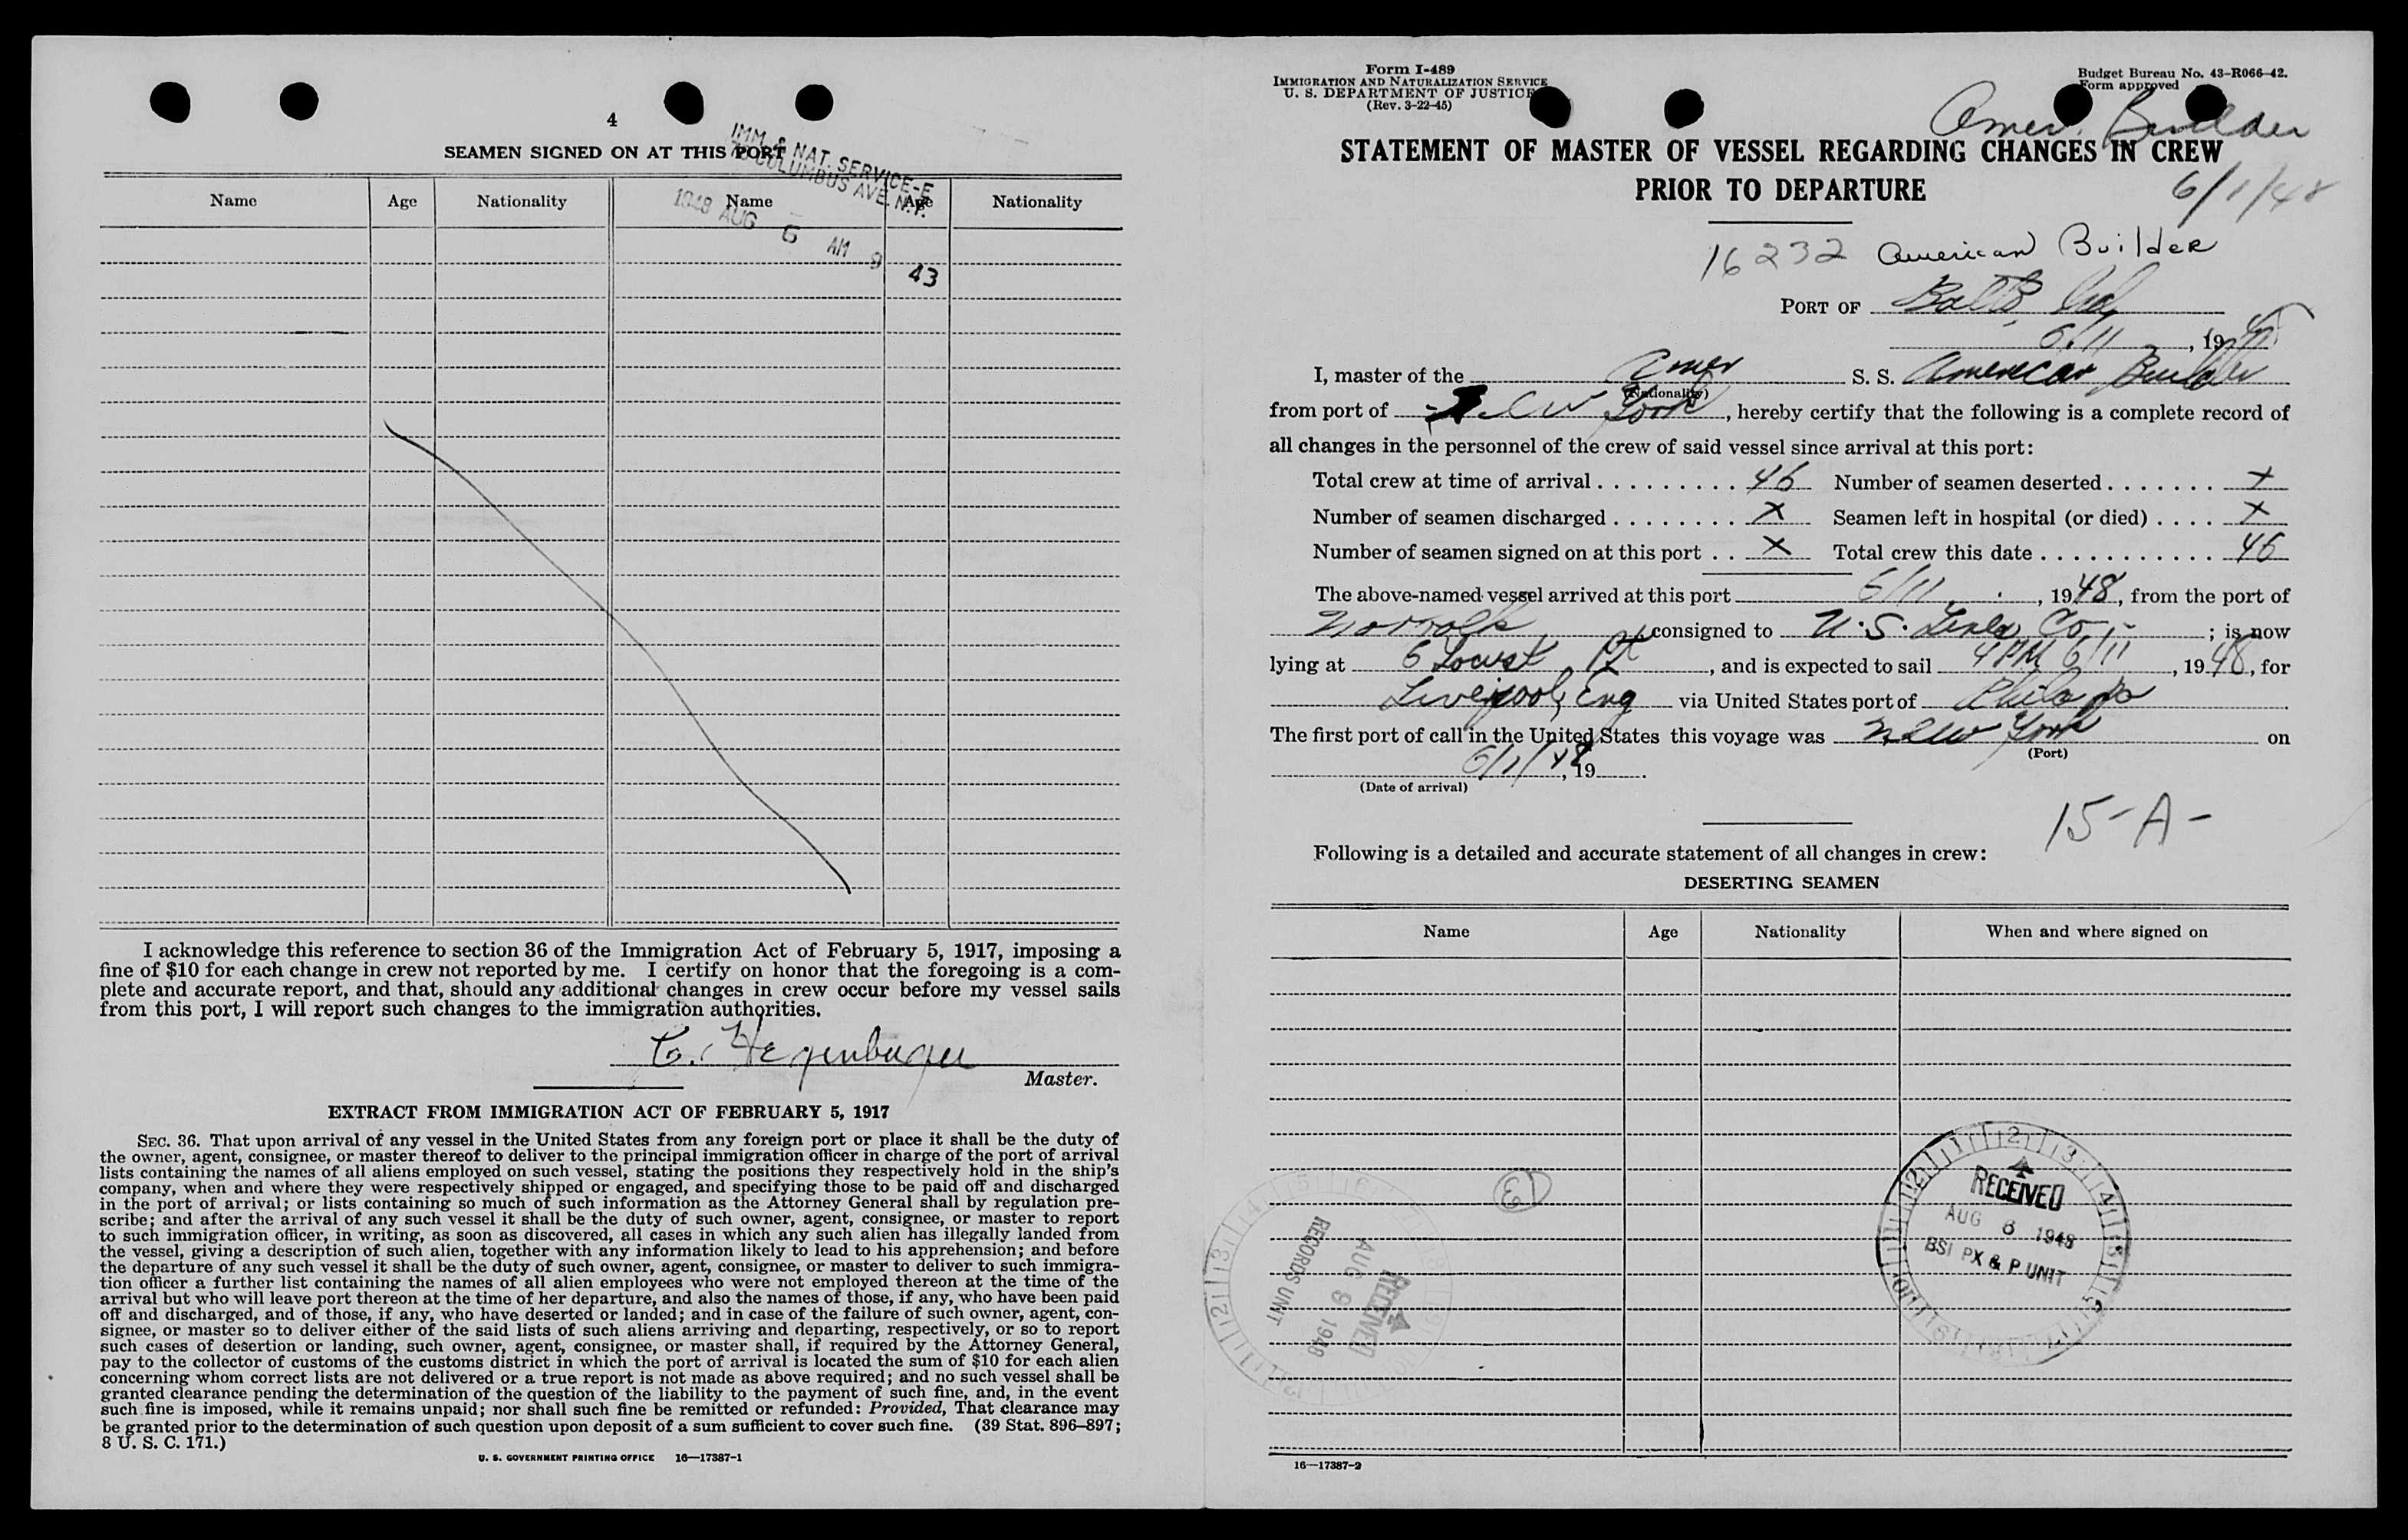 4
SEAMEN SIGNED ON AT THIS PORT
IMM. & NAT. SERVICE-E
COLUMBUS AVE. N.Y.
1948 AUG 6 AM 9 43
Name Age Nationality Name Age Nationality
I acknowledge this reference to section 36 of the Immigration Act of February 5, 1917, imposing a
fine of $10 for each change in crew not reported by me. I certify on honor that the foregoing is a com-
plete and accurate report, and that, should any additional changes in crew occur before my vessel sails
from this port, I will report such changes to the immigration authorities.
Master.
EXTRACT FROM IMMIGRATION ACT OF FEBRUARY 5, 1917
SEC. 36. That upon arrival of any vessel in the United States from any foreign port or place it shall be the duty of
the owner, agent, consignee, or master thereof to deliver to the principal immigration officer in charge of the port of arrival
lists containing the names of all aliens employed on such vessel, stating the positions they respectively hold in the ship's
company, when and where they were respectively shipped or engaged, and specifying those to be paid off and discharged
in the port of arrival; or lists containing so much of such information as the Attorney General shall by regulation pre-
scribe; and after the arrival of any such vessel it shall be the duty of such owner, agent, consignee, or master to report
to such immigration officer, in writing, as soon as discovered, all cases in which any such alien has illegally landed from
the vessel, giving a description of such alien, together with any information likely to lead to his apprehension; and before
the departure of any such vessel it shall be the duty of such owner, agent, consignee, or master to deliver to such immigra-
tion officer a further list containing the names of all alien employees who were not employed thereon at the time of the
arrival but who will leave port thereon at the time of her departure, and also the names of those, if any, who have been paid
off and discharged, and of those, if any, who have deserted or landed; and in case of the failure of such owner, agent, con-
signee, or master so to deliver either of the said lists of such aliens arriving and departing, respectively, or so to report
such cases of desertion or landing, such owner, agent, consignee, or master shall, if required by the Attorney General,
pay to the collector of customs of the customs district in which the port of arrival is located the sum of $10 for each alien
concerning whom correct lists are not delivered or a true report is not made as above required; and no such vessel shall be
granted clearance pending the determination of the question of the liability to the payment of such fine, and, in the event
such fine is imposed, while it remains unpaid; nor shall such fine be remitted or refunded: Provided, That clearance may
be granted prior to the determination of such question upon deposit of a sum sufficient to cover such fine. (39 Stat. 896–897;
8 U. S. C. 171.)
U. S. GOVERNMENT PRINTING OFFICE 16—17387-1
Form I-489
IMMIGRATION AND NATURALIZATION SERVICE
U. S. DEPARTMENT OF JUSTICE
(Rev. 3-22-45)
Budget Bureau No. 43-R066-42.
Form approved
Amer. Builder
STATEMENT OF MASTER OF VESSEL REGARDING CHANGES IN CREW
PRIOR TO DEPARTURE
6/1/48
16232 American Builder
PORT OF Balto
6/11, 19
I, master of the Amer S. S. American Builder
(Nationality)
from port of New York, hereby certify that the following is a complete record of
all changes in the personnel of the crew of said vessel since arrival at this port:
Total crew at time of arrival 46 Number of seamen deserted x
Number of seamen discharged x Seamen left in hospital (or died) x
Number of seamen signed on at this port x Total crew this date 46
The above-named vessel arrived at this port 6/11, 1948, from the port of
Norfolk consigned to U.S. Lines Co; is now
lying at 6 Locust Pt, and is expected to sail 4 PM 6/11, 1948, for
Liverpool, Eng via United States port of Phila Pa
The first port of call in the United States this voyage was New York on
(Port)
6/1/48, 19
(Date of arrival)
15-A-
Following is a detailed and accurate statement of all changes in crew:
DESERTING SEAMEN
Name Age Nationality When and where signed on
RECEIVED
AUG 9 1948
RECORDS UNIT
3
RECEIVED
AUG 6 1948
BSI PX & P UNIT
16—17387-2